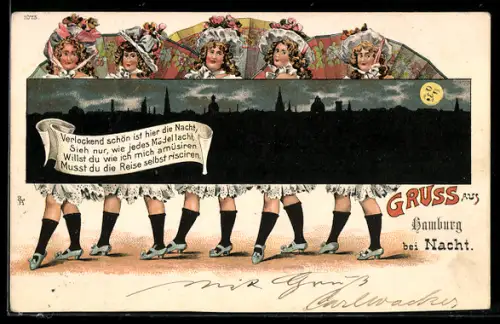 1073.
Verlockend schön ist hier die Nacht,
Sieh nur, wie jedes Mädel lacht,
Willst du wie ich mich amüsiren,
Musst du die Reise selbst risciren.
GRUSS AUS
Hamburg
bei Nacht.
mit Gruß